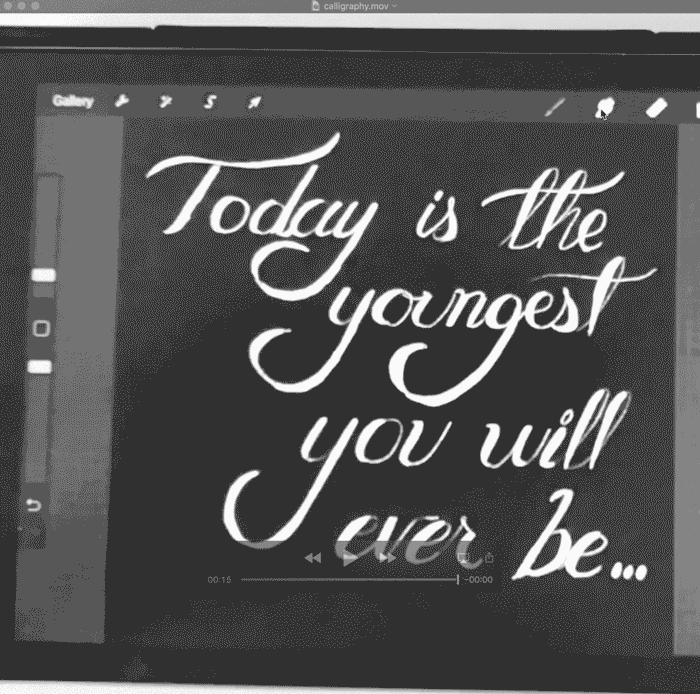 calligraphy.mov
Gallery
Today is the
youngest
you will
ever be...
00:15 -00:00